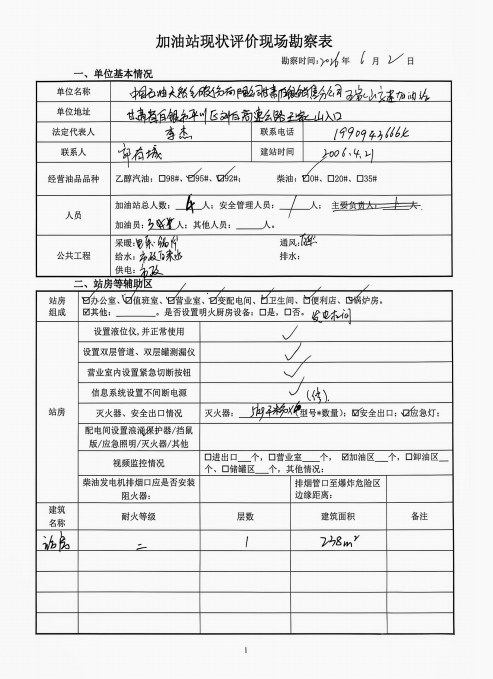 加油站现状评价现场勘察表
勘察时间:2026年 6 月 2 日
一、单位基本情况
单位名称 中国石油天然气股份有限公司甘肃白银销售分公司
单位地址 甘肃省白银市平川区 入口
法定代表人 李杰 联系电话 1990943666K
联系人 建站时间 2006.4.21
经营油品品种 乙醇汽油:□98#、☑95#、☑92#; 柴油:☑0#、□20#、□35#
人员 加油站总人数: 4 人;安全管理人员: / 人; 主要负责人: 1 人
加油员: 人;其他人员: 人。
公共工程 采暖: 通风:
给水:市政自来水 排水:
供电:市政
二、站房等辅助区
站房组成 ☑办公室、☑值班室、☑营业室、☑变配电间、☑卫生间、☑便利店、☑锅炉房。
☑其他: 。是否设置明火厨房设备:□是,□否。 发电机间
站房 设置液位仪,并正常使用 ✓
设置双层管道、双层罐测漏仪 ✓
营业室内设置紧急切断按钮 ✓
信息系统设置不间断电源 ✓
灭火器、安全出口情况 灭火器: (型号*数量);☑安全出口;☑应急灯;
配电间设置浪涌保护器/挡鼠版/应急照明/灭火器/其他
视频监控情况 □进出口 个,□营业室 个, ☑加油区 个,□卸油区 个、□储罐区 个,其他情况:
柴油发电机排烟口应是否安装阻火器: 排烟管口至爆炸危险区边缘距离:
建筑名称 耐火等级 层数 建筑面积 备注
站房 二 1 238m²
1